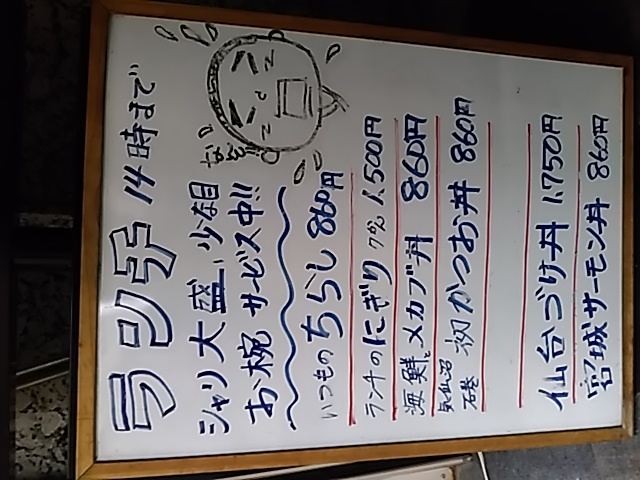 ランチ 14時まで
シャリ大盛、少な目
お椀 サービス中!!
いつもの ちらし 860円
ランチの にぎり 7かん 1,500円
海鮮と メカブ丼 860円
気仙沼 石巻 初かつお丼 860円
仙台づけ丼 1,750円
宮城サーモン丼 860円